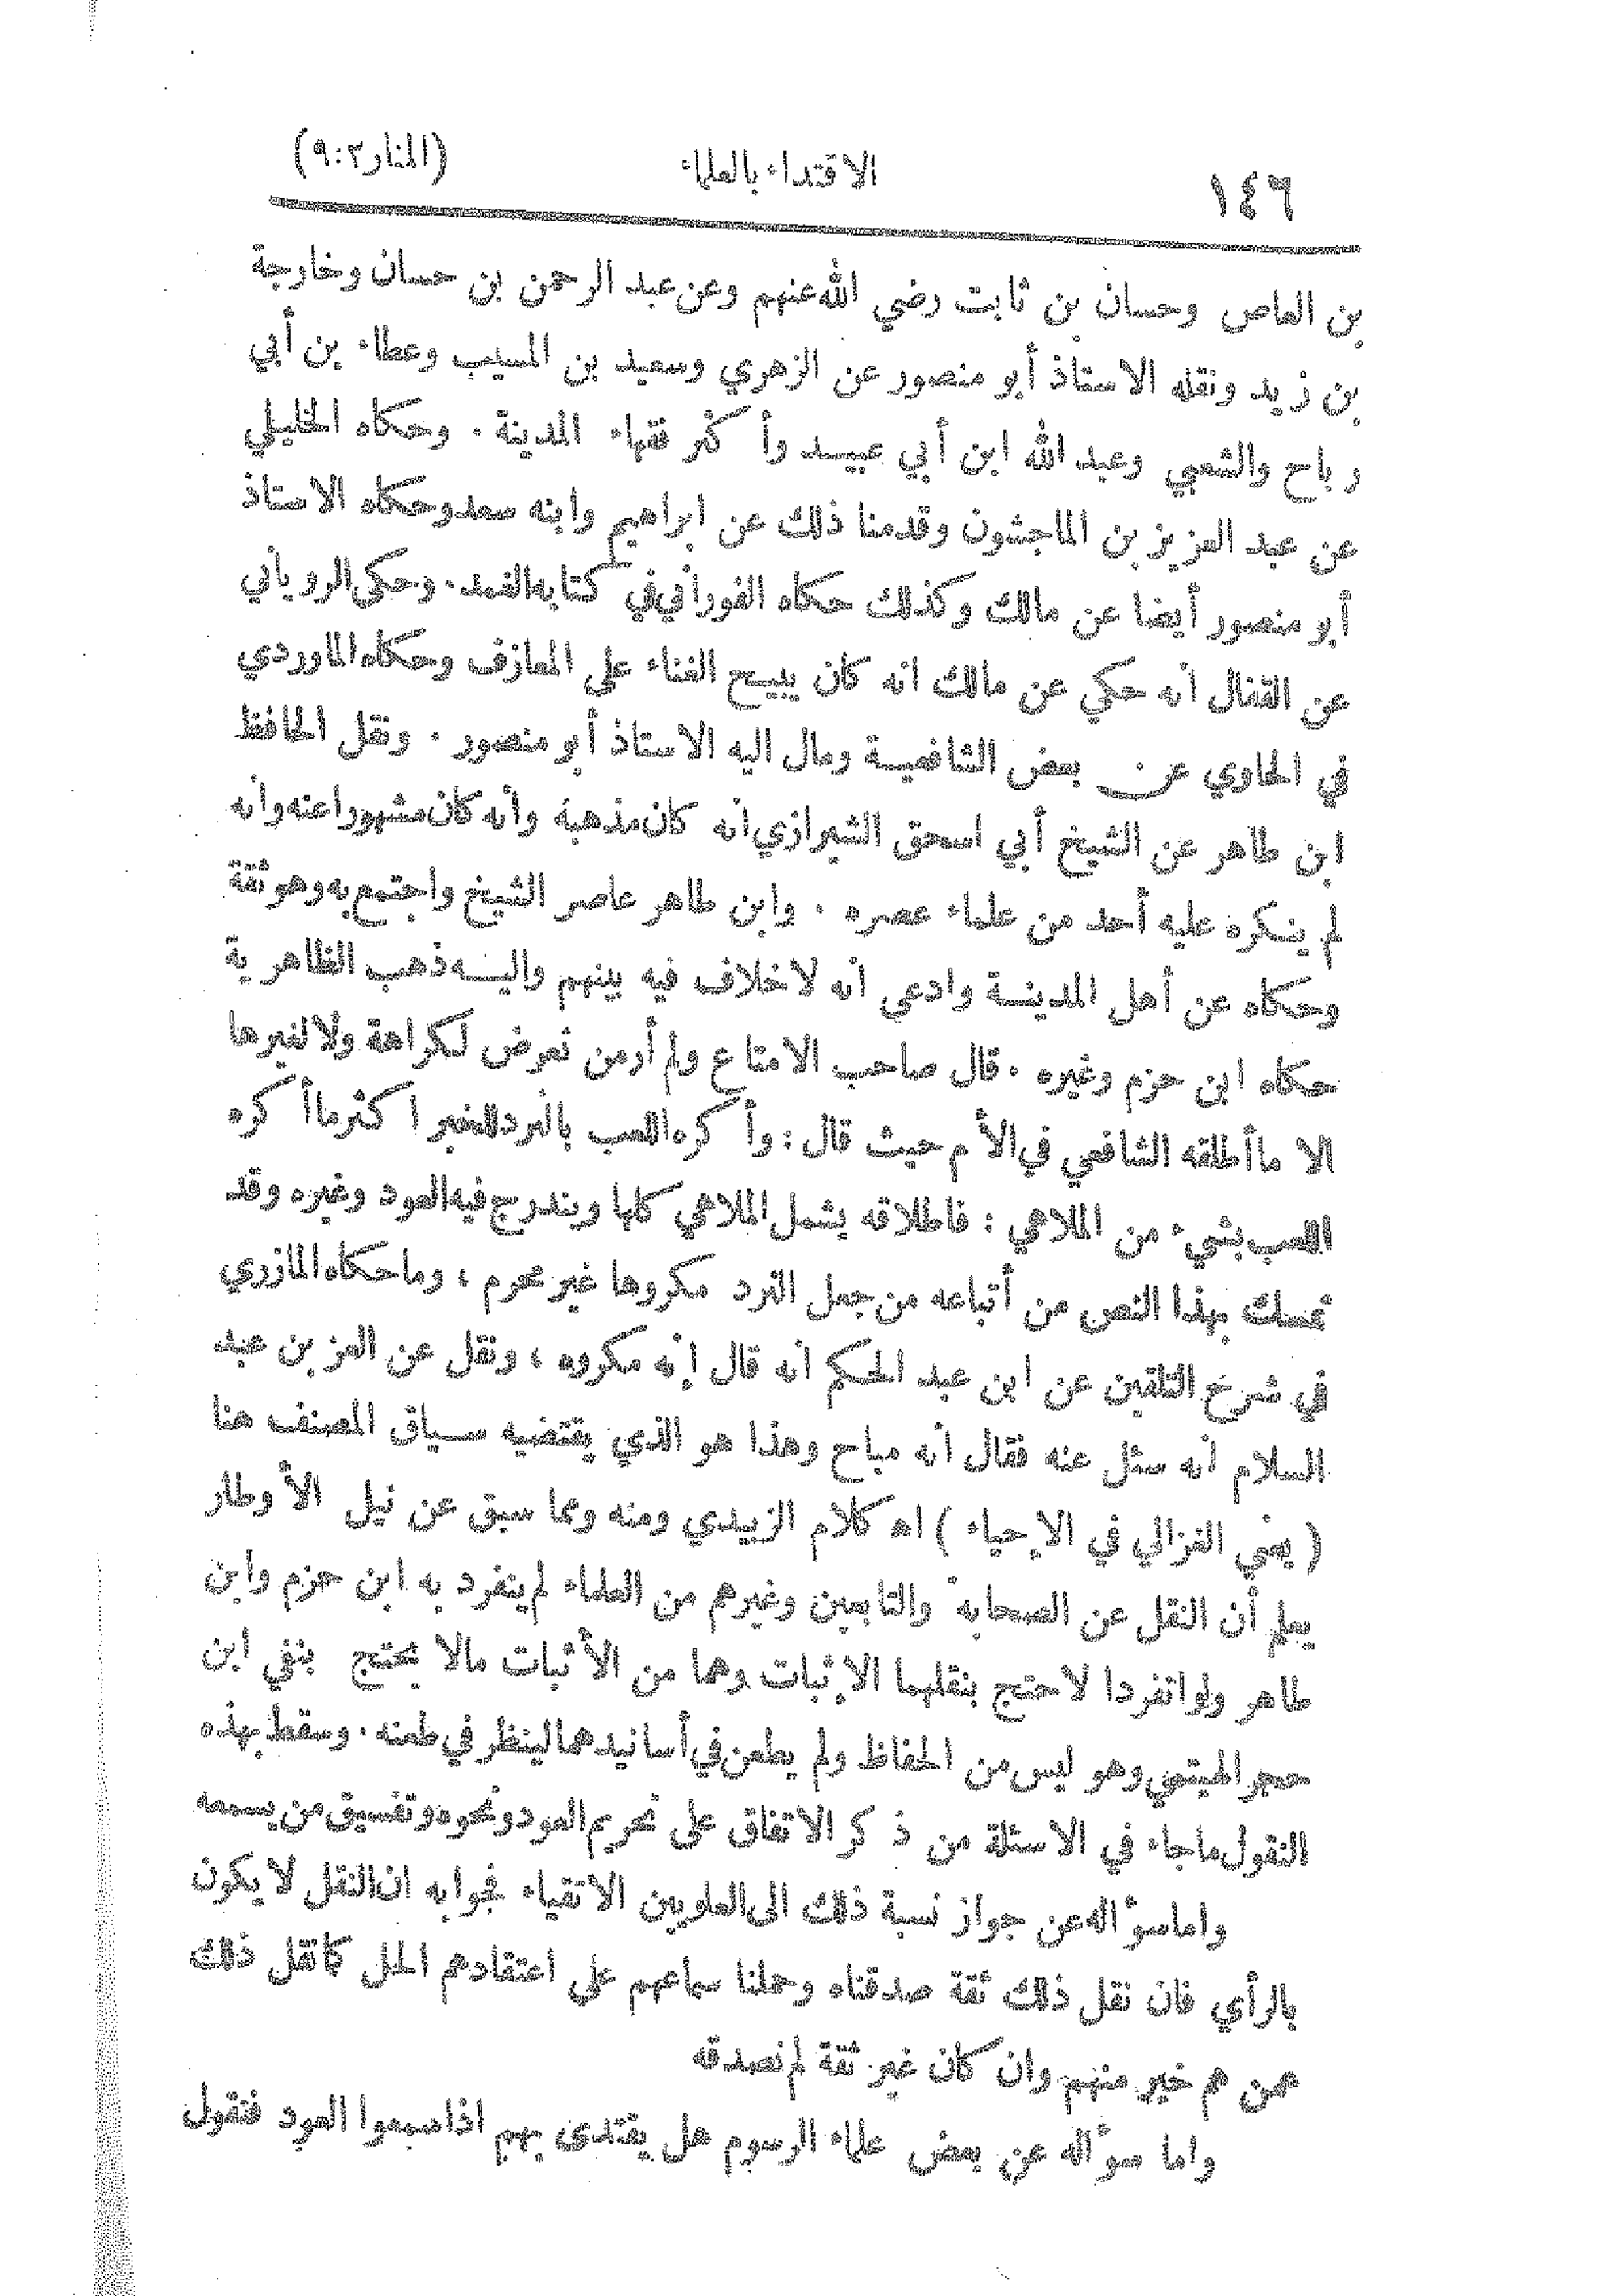 ١٤٦ الاقتداء بالعلماء (المنار ٣:٩)
بن العاص وحسان بن ثابت رضي الله عنهم وعن عبد الرحمن بن حسان وخارجة
بن زيد ونقله الاستاذ أبو منصور عن الزهري وسعيد بن المسيب وعطاء بن أبي
رباح والشعبي وعبد الله ابن أبي عبيد وأكثر فقهاء المدينة . وحكاه الخليلي
عن عبد العزيز بن الماجشون وقدمنا ذلك عن ابراهيم وابنه سعد وحكاه الاستاذ
أبو منصور أيضا عن مالك وكذلك حكاه الفوراني في كتابه العمد . وحكى الروياني
عن القفال أنه حكي عن مالك انه كان يبيح الغناء على المعازف وحكاه الماوردي
في الحاوي عن بعض الشافعية ومال اليه الاستاذ أبو منصور . ونقل الحافظ
ابن طاهر عن الشيخ أبي اسحق الشيرازي انه كان مذهبه وأنه كان مشهورا عنه وأنه
لم ينكره عليه أحد من علماء عصره . وابن طاهر عاصر الشيخ واجتمع به وهو ثقة
وحكاه عن أهل المدينة وادعى أنه لا خلاف فيه بينهم واليه ذهب الظاهرية
حكاه ابن حزم وغيره . قال صاحب الامتاع ولم أر من تعرض لكراهة ولا لغيرها
الا ما أطلقه الشافعي في الأم حيث قال : وأكره اللعب بالنرد للخبر اكثر ما أكره
اللعب بشيء من الملاهي : فاطلاقه يشمل الملاهي كلها ويندرج فيه العود وغيره وقد
تمسك بهذا النص من أتباعه من جعل النرد مكروها غير محرم ، وما حكاه المازري
في شرح التلقين عن ابن عبد الحكم أنه قال إنه مكروه ، ونقل عن العز بن عبد
السلام انه سئل عنه فقال أنه مباح وهذا هو الذي يقتضيه سياق المصنف هنا
( يعني الغزالي في الإحياء ) اه كلام الزبيدي ومنه ومما سبق عن نيل الأوطار
يعلم أن النقل عن الصحابة والتابعين وغيرهم من العلماء لم يتفرد به ابن حزم وابن
طاهر ولو اتفردا لاحتج بنقلهما الإثبات وهما من الأثبات مالا يحتج بنفي ابن
حجر الهيتمي وهو ليس من الحفاظ ولم يطعن في أسانيدهما لينظر في طعنه . وسقط بهذه
النقول ما جاء في الاسئلة من ذكر الاتفاق على تحريم العود ونحوه وتفسيق من يسمعه
واما سؤاله عن جواز نسبة ذلك الى العلويين الاتقياء فجوابه ان النقل لا يكون
بالرأي فان نقل ذلك ثقة صدقناه وحملنا سماعهم على اعتقادهم الحل كما نقل ذلك
عمن هم خير منهم وان كان غير ثقة لم نصدقه
واما سؤاله عن بعض علماء الرسوم هل يقتدى بهم اذا سمعوا العود فنقول